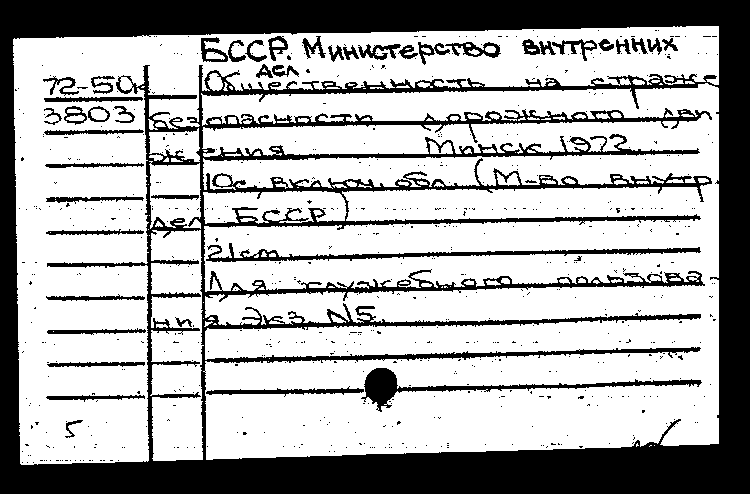 БССР. Министерство внутренних
дел.
72-50к Общественность на страже
3803 безопасности дорожного дви-
жения Минск, 1972.
10с. включ. обл. (М-во внутр.
дел БССР)
21 cm.
Для служебного пользова-
ния. Экз. N5.
5